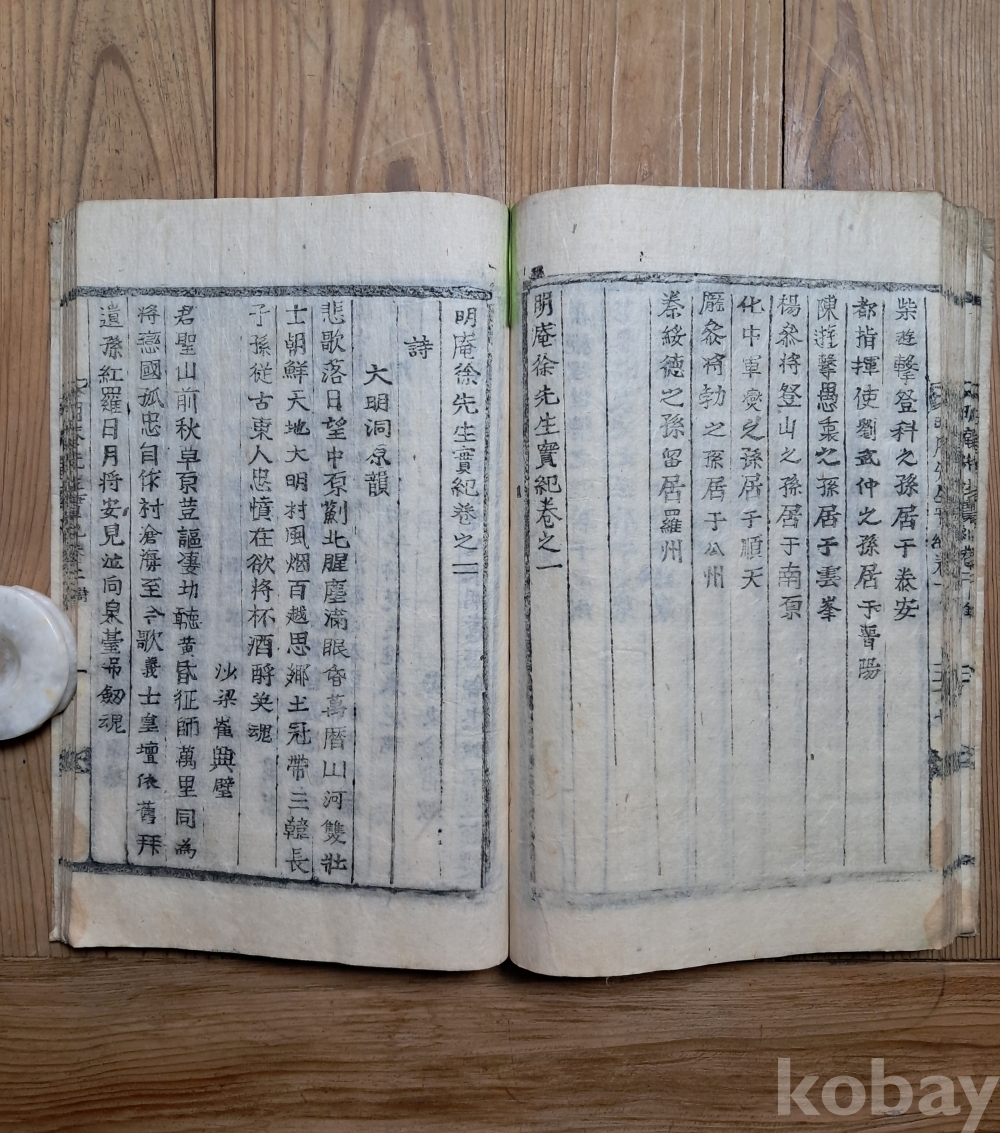 柴遊擊登科之孫居于泰安
都指揮使劉武仲之孫居于晋陽
陳遊擊愚衷之孫居于雲峯
楊叅將登山之孫居于南原
化中軍爕之孫居于順天
厖叅將勃之孫居于公州
秦綏德之孫留居羅州
明庵徐先生實紀卷之一
明庵徐先生實紀卷之二
詩
大明洞原韻
悲歌落日望中原薊北腥塵滿眼昏萬曆山河雙壯
士朝鮮天地大明村風烟百越思鄉土冠帶三韓長
子孫從古東人忠憤在欲將杯酒酹英魂
沙梁崔典壁
君聖山前秋草原荳謳凄切聽黄昏征師萬里同為
將戀國孤忠自作村滄海至今歌義士皇壇依舊拜
遺孫紅羅日月將安見並向泉臺吊劒魂
kobay